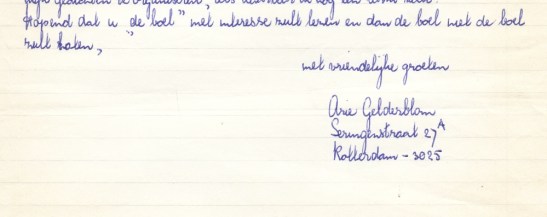 Hopend dat u "de boel" met interesse zult lezen en dan de boel niet de boel
zult laten,
met vriendelijke groeten
Arie Gelderblom
Seringenstraat 27A
Rotterdam - 3025